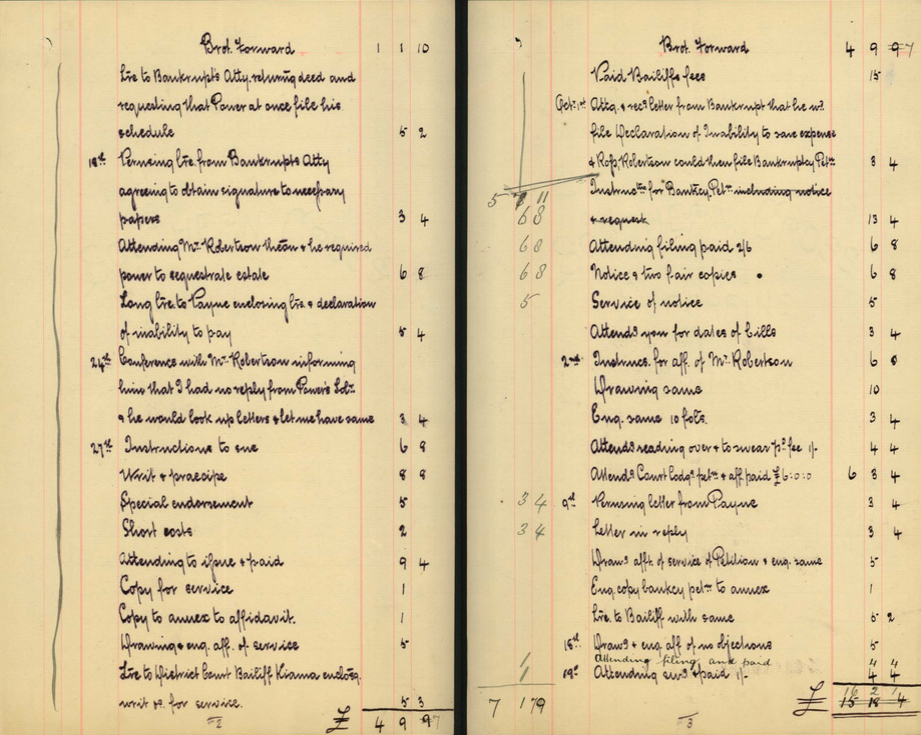 Brot. Forward 1 1 10
Lre to Bankrupt's Atty. returng deed and
requesting that Power at once file his
schedule 5 2
18th Perusing lre. from Bankrupts Atty
agreeing to obtain signature to necessary
papers 3 4
Attending Mr. Robertson thereon & he required
power to sequestrate estate 6 8
Long lre. to Payne enclosing lre. & declaration
of inability to pay 5 4
24th Conference with Mr. Robertson informing
him that I had no reply from Power's Solr.
& he would look up letters & let me have same 3 4
27th Instructions to sue 6 8
Writ & praecipe 8 8
Special endorsement 5
Short costs 2
Attending to issue & paid 9 4
Copy for service 1
Copy to annex to affidavit. 1
Drawing & eng. aff. of service 5
Lre to District Court Bailiff Kiama enclosg.
writ &c. for service. 5 3
2 £ 4 9 97
Brot. Forward 4 9 97
Paid Bailiffs fees 15
Octr. 1st Attg. & recg letter from Bankrupt that he wd.
file Declaration of Inability to save expense
& Ross, Robertson could then file Bankruptcy Petn. 3 4
Instructns for Bankcy. Petn. including notice
5 11
& request 13 4
6 8
6 8 Attending filing paid 2/6 6 8
6 8 Notice & two fair copies 6 8
5 Service of notice 5
Attendg you for dates of bills 3 4
2nd Instrucs. for aff. of Mr. Robertson 6 8
Drawing same 10
Eng. same 10 fols. 3 4
Attendg reading over & to swear pd. fee 1/- 4 4
Attendg Court lodgg petn. & aff. paid £6:0:0 6 3 4
3 4 9th Perusing letter from Payne 3 4
3 4 Letter in reply 3 4
Drawg afft. of service of Petition & eng. same 5
Eng. copy bankcy petn. to annex 1
Lre. to Bailiff with same 5 2
18th Drawg & eng aff of no objections 5
Attending filing and paid 4 4
19th Attending & paid 1/- 4 4
16 2 1
7 1 79 £ 15 18 4
3